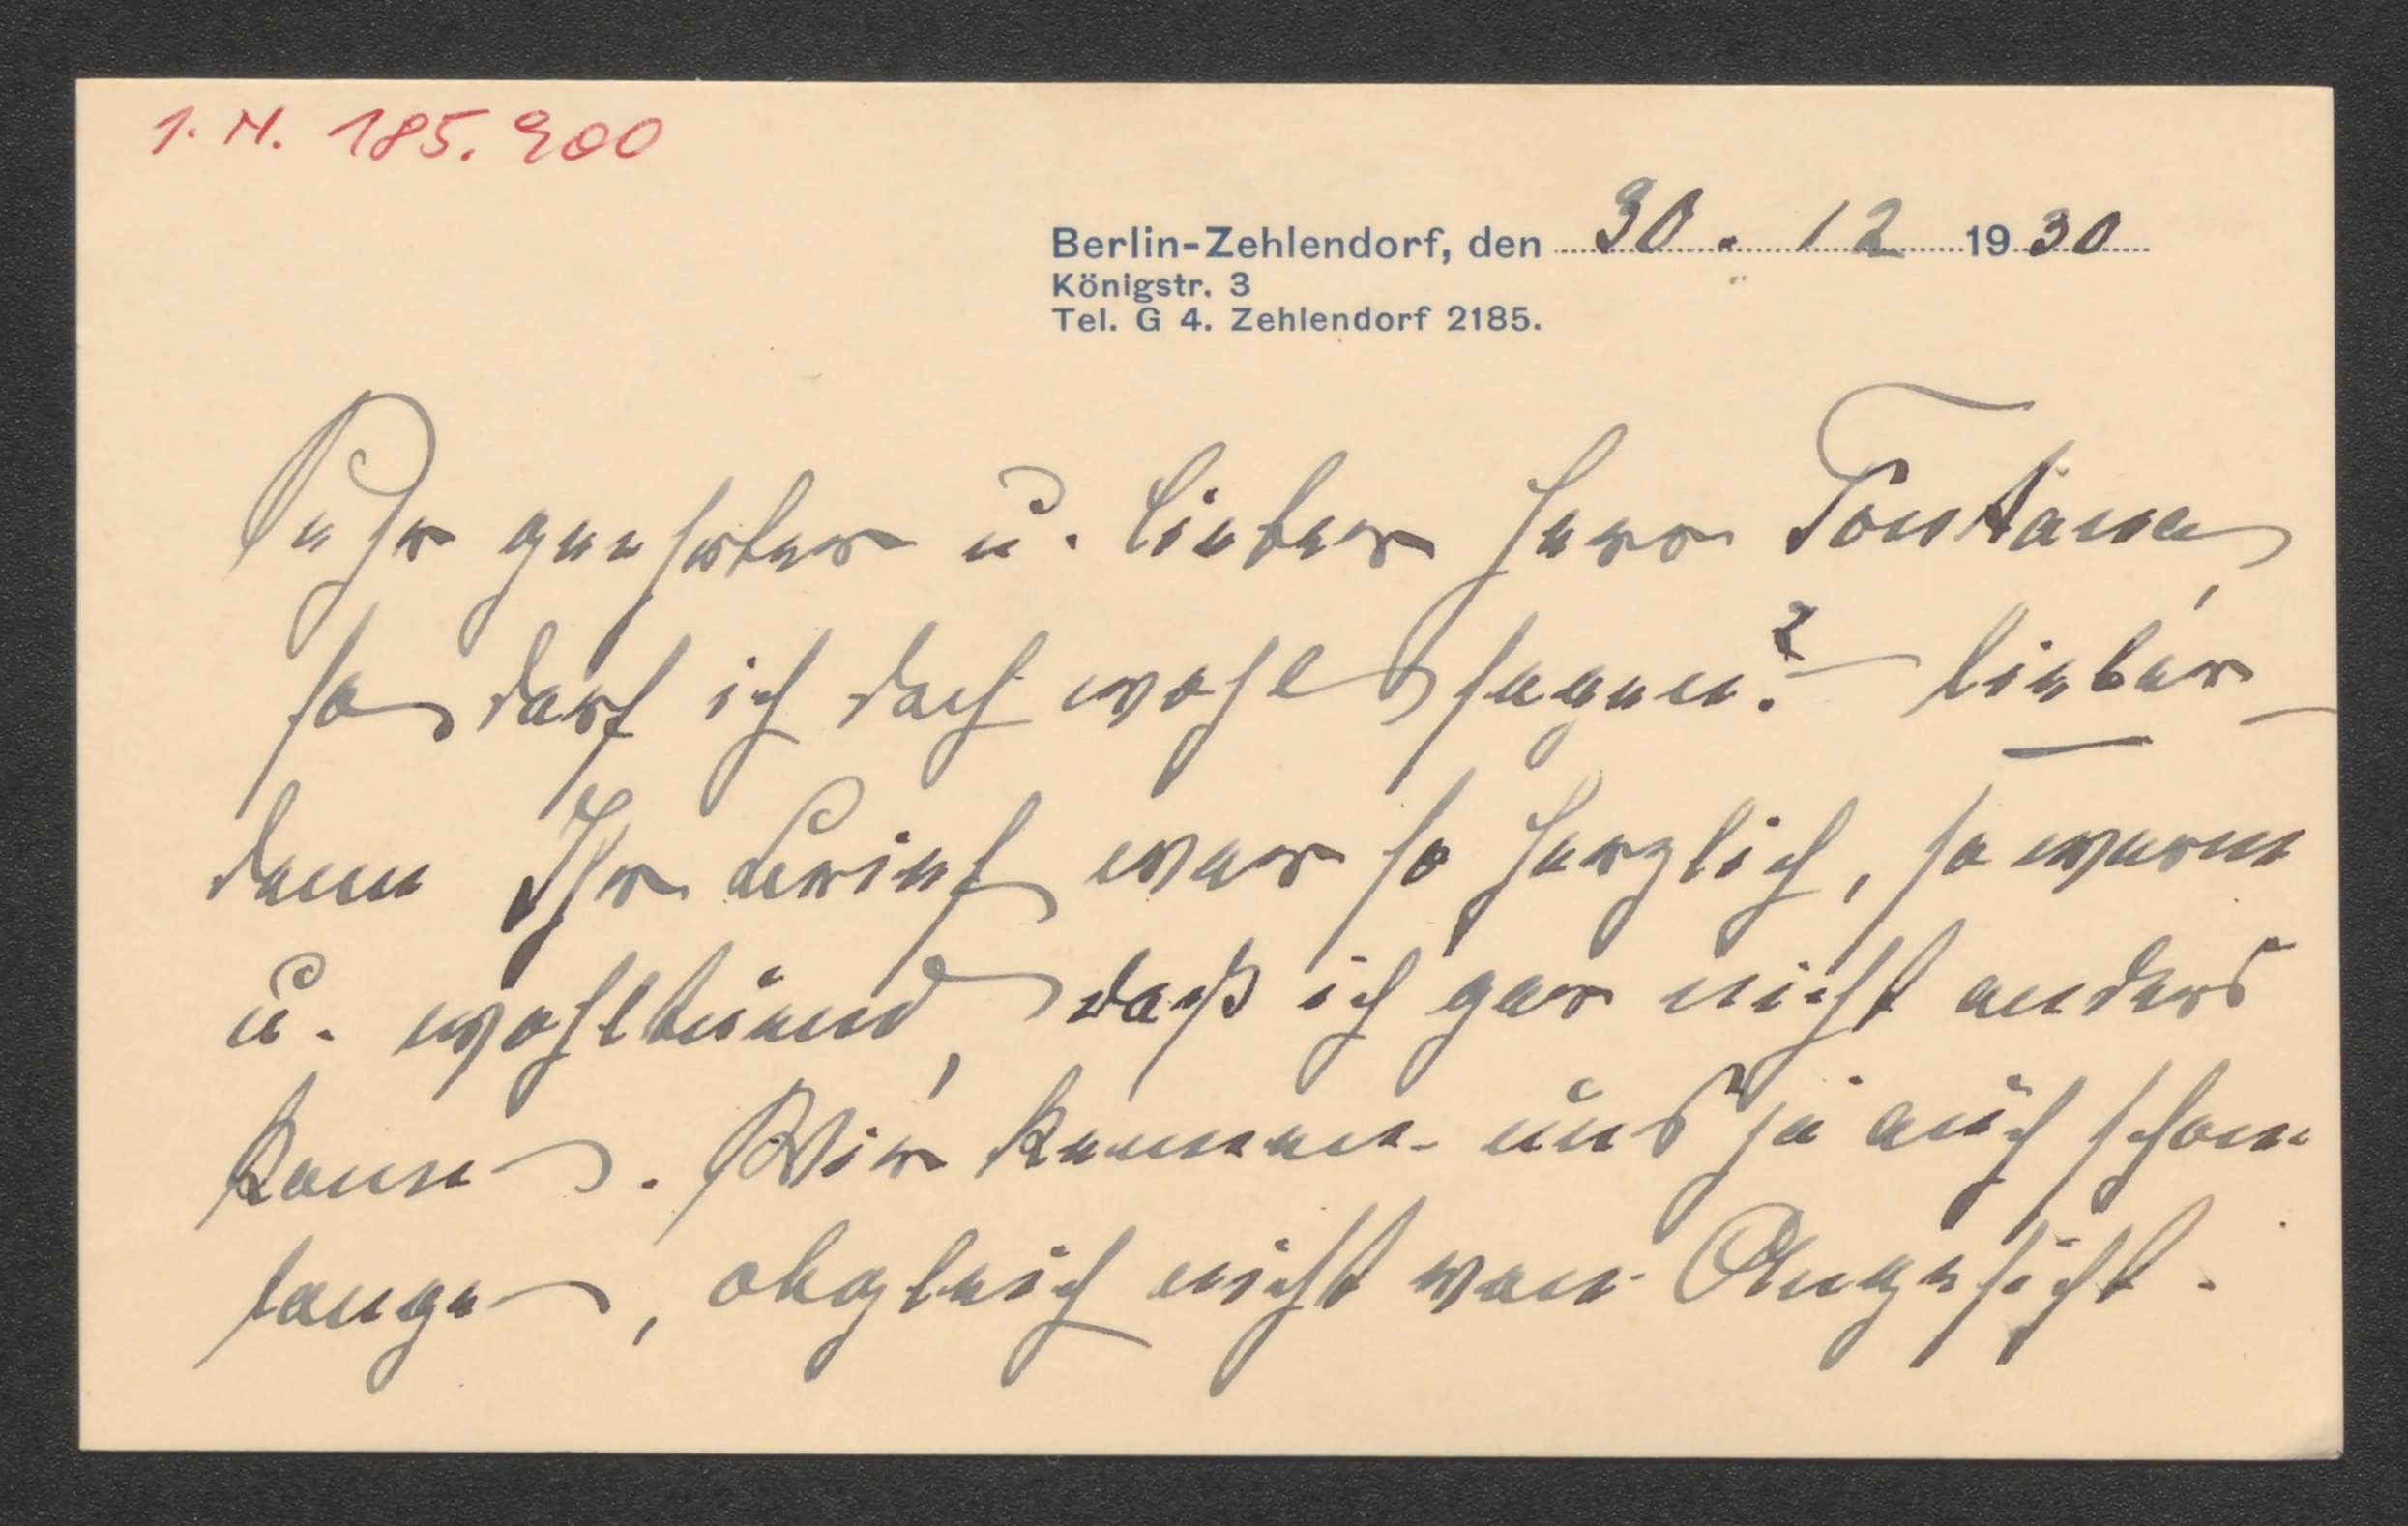 I. N. 185.900
Berlin-Zehlendorf, den 30. 12 1930
Königstr. 3
Tel. G 4. Zehlendorf 2185.
Sehr geehrter u. lieber Herr Fontana,
so darf ich doch wohl sagen? – lieber –
denn Ihr Brief war so herzlich, so warm
u. wohltuend, daß ich gar nicht anders
kann. Wir kennen uns ja auch schon
lange, obgleich nicht von Angesicht.